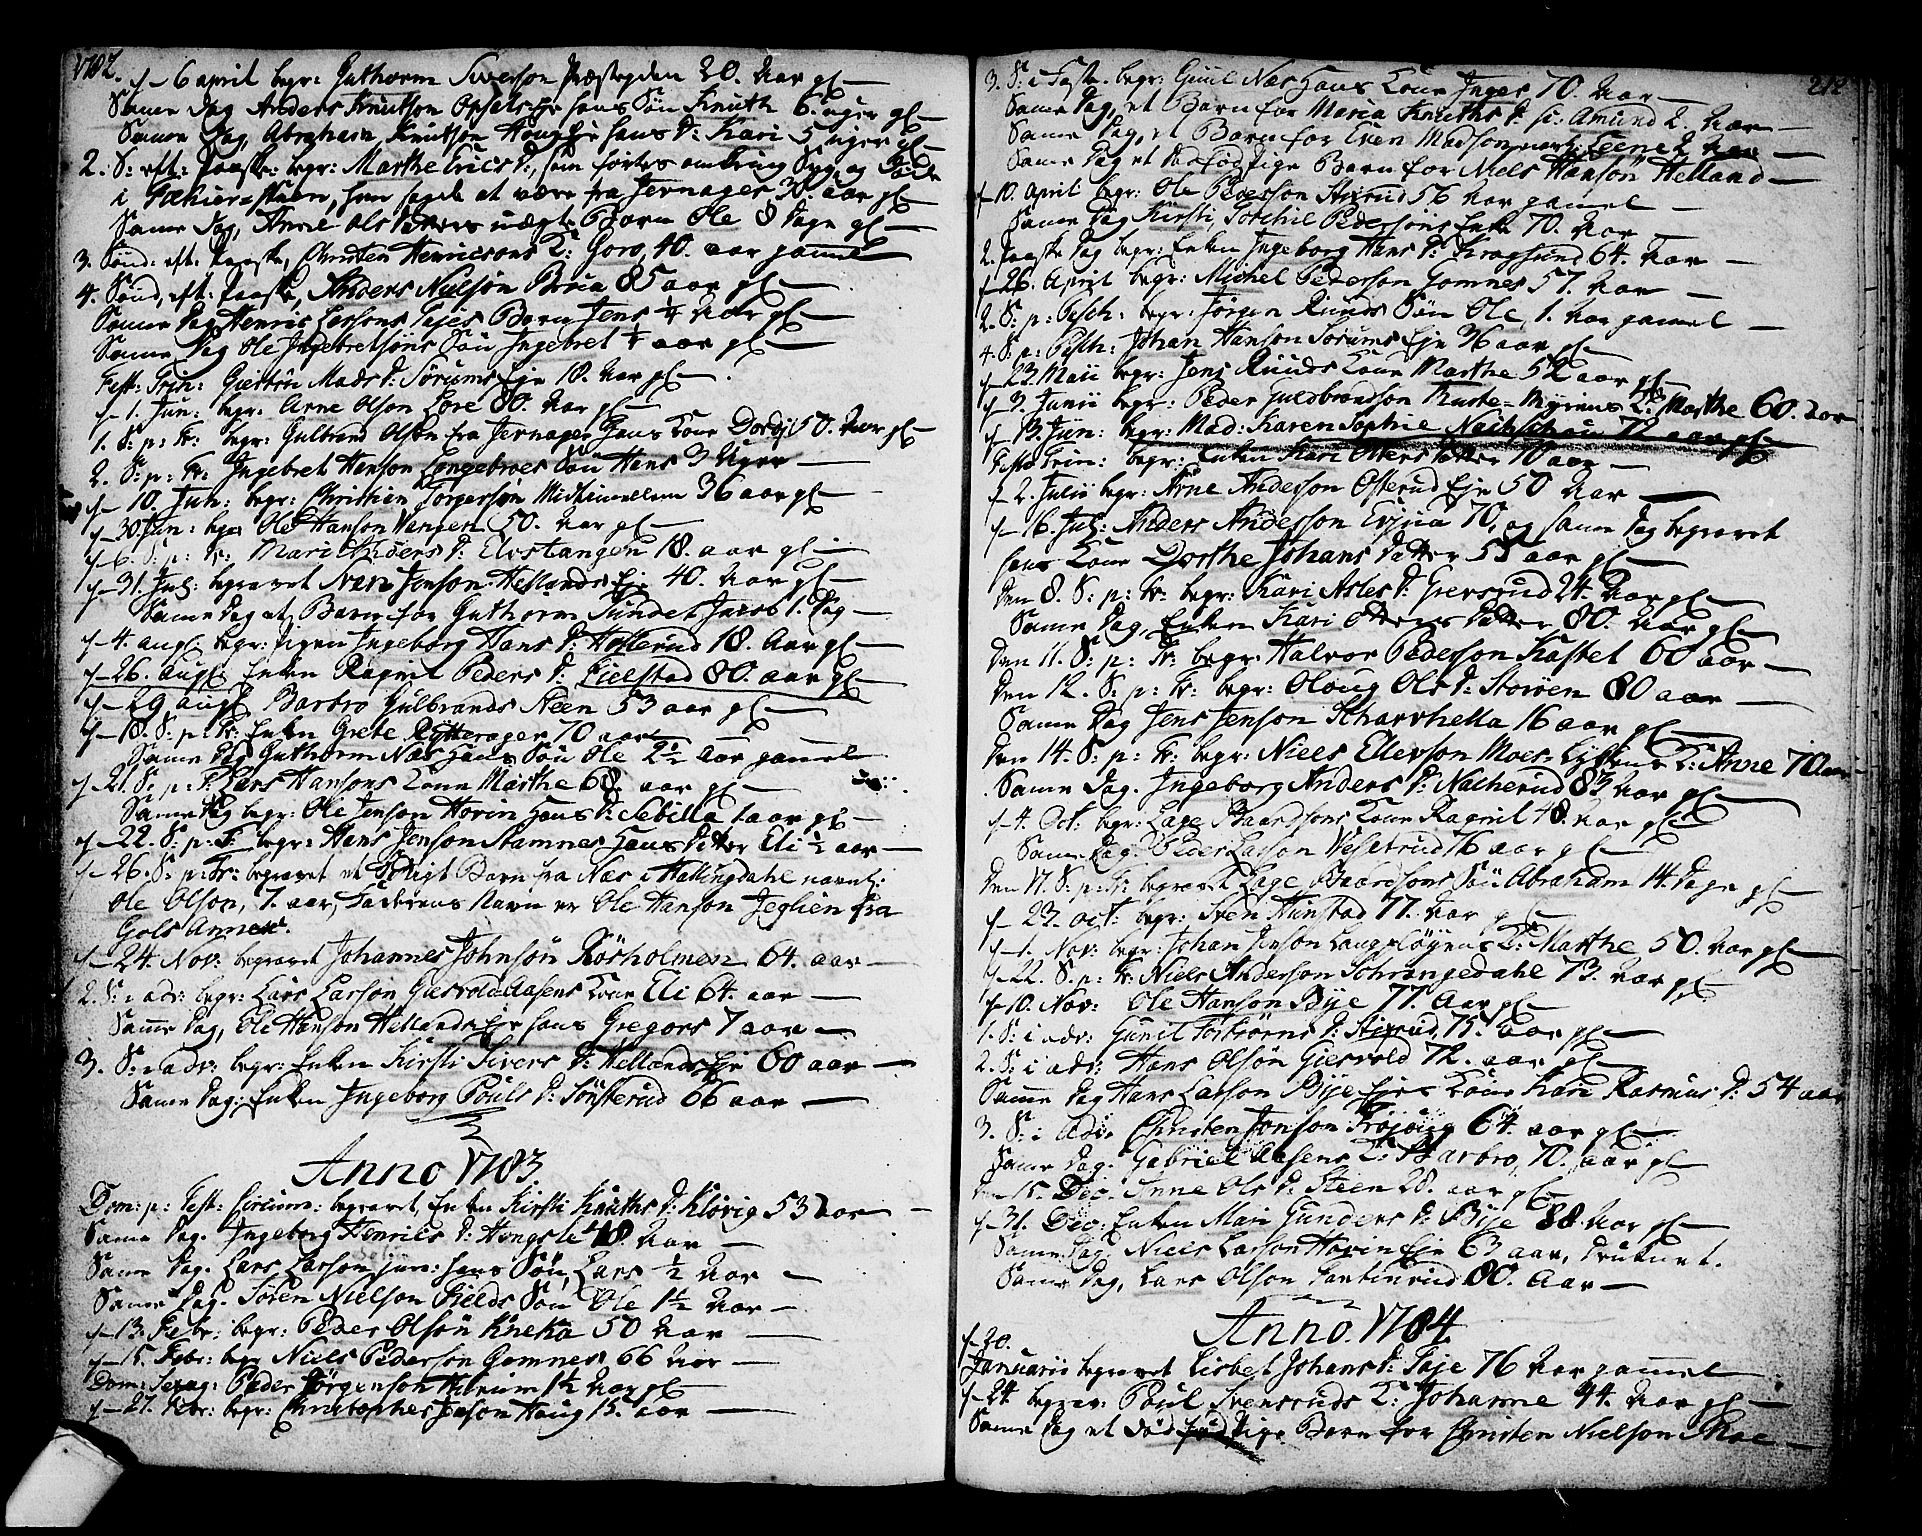 1782.
d. 6 april begr: Guthorm Siverson Præstegden 20. Aar gl
Same Dag Anders Knutson Opsals Eje hans Sön Knuth 6 uger gl
Same Dag, Abraham Knutson Houg Eje hans D: Kari 5 uger gl
2. S: eft: Paaske: begr: Marthe Erics D:, som förtes omkring Syg, og döde
i Fathier-stuen, hun sagde at være fra Jernager, 30. aar gl
Same Dag, Anne Ols Datters uægte Barn Ole 8 Dage gl
3. Sönd: eft: Paaske, Christen Henricsons K: Goro, 40. aar gammel
4. Sönd, eft: Paaske, Anders Nielsön Bria 85 aar gl
Same Dag Henric Larsons Tajes Barn Jens ¼ Aar gl
Same Dag Ole Ingebretsöns Sön Ingebret ¼ aar gl
Fest: Trin: Giertru Mads D: Sörums Eje 18. Aar gl
d. 1. Jun: begr: Arne Olson Lore 80. Aar gl
1. S: p: Tr: begr: Gulbrand Olsön fra Jernager hans Kone Dordj 50. Aar gl
2. S: p: Tr: Ingebret Hanson Longebroes Sön Hans 3 Uger
d. 10. Jun: begr: Christien Torgersön 36 aar gl
d. 30. Jun: begr Ole Hanson Vangen 50. Aar gl
d. 6. S: p: Tr: Mari Anders D: Elvstangen 18. aar gl
d. 31. Jul: begravet Svari Jonson Hellands Eje 40. Aar gl
Same Dag et Barn for Guthorm Sundet Jacob 1. Dag
d. 4. aug begr: Pigen Ingeborg Hans D: Hollerud 18. Aar gl
d. 26. aug Enken Ragnil Peders D: Fielstad 80. aar gl
d. 29 aug Barbro Gulbrands Steen 53 aar gl
d. 18. S: p: Tr: Enken Grete Rytterager 70 aar
Same Dag Guthorm Næs hans Sön Ole 2½ Aar gammel
d. 21. S: p: T: Lars Hansons Kone Marthe 68. aar gl
Same Dag begr: Ole Jenson Hovin hans D: Sebilla 1 aar gl
d. 22. S: p: T: begr: Hans Jenson Stamnes hans Datter Eli ½ aar
d. 26. S: p: Tr: begravet et Barn fra Næs i Hallingdahl navnl:
Ole Olson, 7. aar, Faderens Navn er Ole Hanson Jeglien fra
Gols Annex.
d. 24. Nov: begravet Johannes Johnsön Rösholmen 64. aar
2. S: i adv: begr: Lars Larson Giesvold Aasens Kone Eli 64. aar
Same Dag, Ole Hanson Hellands Eje hans Gregers 7 aar
3. S: i adv: begr: Enken Kirsti Sivers D: Hellands Eje 60 aar
Same Dag: Enken Ingeborg Pouls D: Sönsterud 66 aar
Anno 1783.
Dom: p: Fest: Circum: begravet, Enken Kirsti Knuths D: Klövig 53 Aar
Same Dag. Ingeborg Henrics D: Hongsle 40. Aar
Same Dag. Lars Larson jun: hans Sön, Lars ½ Aar
Same Dag. Sören Nielson Fields Sön Ole 1½ Aar
d. 13. Febr: begr: Peder Olsön Kneka 50 Aar
d. 15. Febr: begr Niels Pederson Gomnes 66 Aar
Dom: Sexag: Peder Jörgenson Hörum 1½ Aar gl
d. 27. Febr: begr: Christopher Jenson Haug 15. aar
212
3. S: i Faste. begr: Guul Næs hans Kone Inger 70. Aar
Same Dag, et Barn for Maria Knuths D: Amund 2. Aar
Same Dag, et Barn for Even Madson navnl: Leene 2 Aar
Same Dag et dödföd Pige Barn for Niels Hansön Helland
d. 10. April begr: Ole Pederson Stixrud 56 Aar gamel
Same Dag Kirsti, Torchil Pedersöns Enke 70. Aar
2. Paaske Dag begr: Enken Ingeborg Hans D: Kragsund 64. Aar
d. 26. April begr: Michel Pederson Gomnes 57. Aar
2. S: p: Pasch: begr: Jörgen Ruuds Sön Ole 1. Aar gamel
4. S: p: Pasch: Johan Hanson Sörums Eje 36 aar gl
d. 23. Maii begr: Jens Ruuds Kone Marthe 52 aar gl
d. 3. Junii begr: Peder Guldbrandson Myrens K: Marthe 60. Aar
d. 13. Jun: begr: Mad: Karen Sophie Nachschou 72 aar gl
Festo Trin: begr: Enken Kari Ottersdatter 70 aar
d. 2. Julii begr: Arne Anderson Osterud Eje 50 Aar
d. 16. Jul: Anders Anderson Evjua 70, og same Dag begravet
hans Kone Dorthe Johans Datter 55 aar gl
den 8. S: p: Tr: begr: Kari Asles D: Grevsrud 24. Aar gl
Same Dag, Enken Kari Otters Datter 80. Aar gl
den 11. S: p: Tr: begr: Halvor Pederson Kastet 60 aar
den 12. S: p: Tr: begr: Oloug Ols D: Storöen 80 aar
Same Dag Jens Jenson Scharvhella 16 aar gl
den 14. S: p: Tr: begr: Niels Ellevson Moes-Eyens K: Anne 70 aar
Same Dag. Ingeborg Anders D: Nacherud 83 Aar gl
d. 4. Oct: begr: Lage Baardsons Kone Ragnil 48. Aar gl
Same Dag. Peder Larson Veseterud 76 aar gl
den 17. S: p: Tr: begravet Lage Baardsons Sön Abraham 14. Dage gl
d. 23. Oct: begr: Sten Tunstad 77. Aar gl
d. 1. Nov: begr: Johan Jenson Langslöyens K: Marthe 50. Aar gl
d. 22. S: p: Tr: Niels Anderson Schrangedahl 73. Aar gl
d. 10. Nov: Ole Hanson Bye 77. Aar gl
1. S: i adv: Gunil Torbiörns D: Stixrud 75. Aar gl
2. S: i adv: Hans Olsön Giesvold 72. aar gl
Same Dag Hans Larson Bye Ejes Kone Kari Rasmus D: 54 aar
3. S: i adv: Christen Jonson Fröjövig 64. aar gl
Same Dag. Gabriel Aasens K: Barbro, 70. aar gl
den 15. Dec: Anne Ols D: Steen 28. aar gl
d. 31. Dec: Enken Mari Gunders D: Bye 88. Aar gl
Same Dag: Niels Larson Hovin Eje 63 aar, druknet.
Same Dag, Lars Olson Santinrud 80. Aar
Anno 1784.
d. 20.
Januarii begravet Lisbet Johans D: Taje 76 Aar gammel
d. 24 begrav: Poul Svensruds K: Johanne 44. Aar gl
Same Dag et dödföd Pige Barn for Christen Nielson Moe